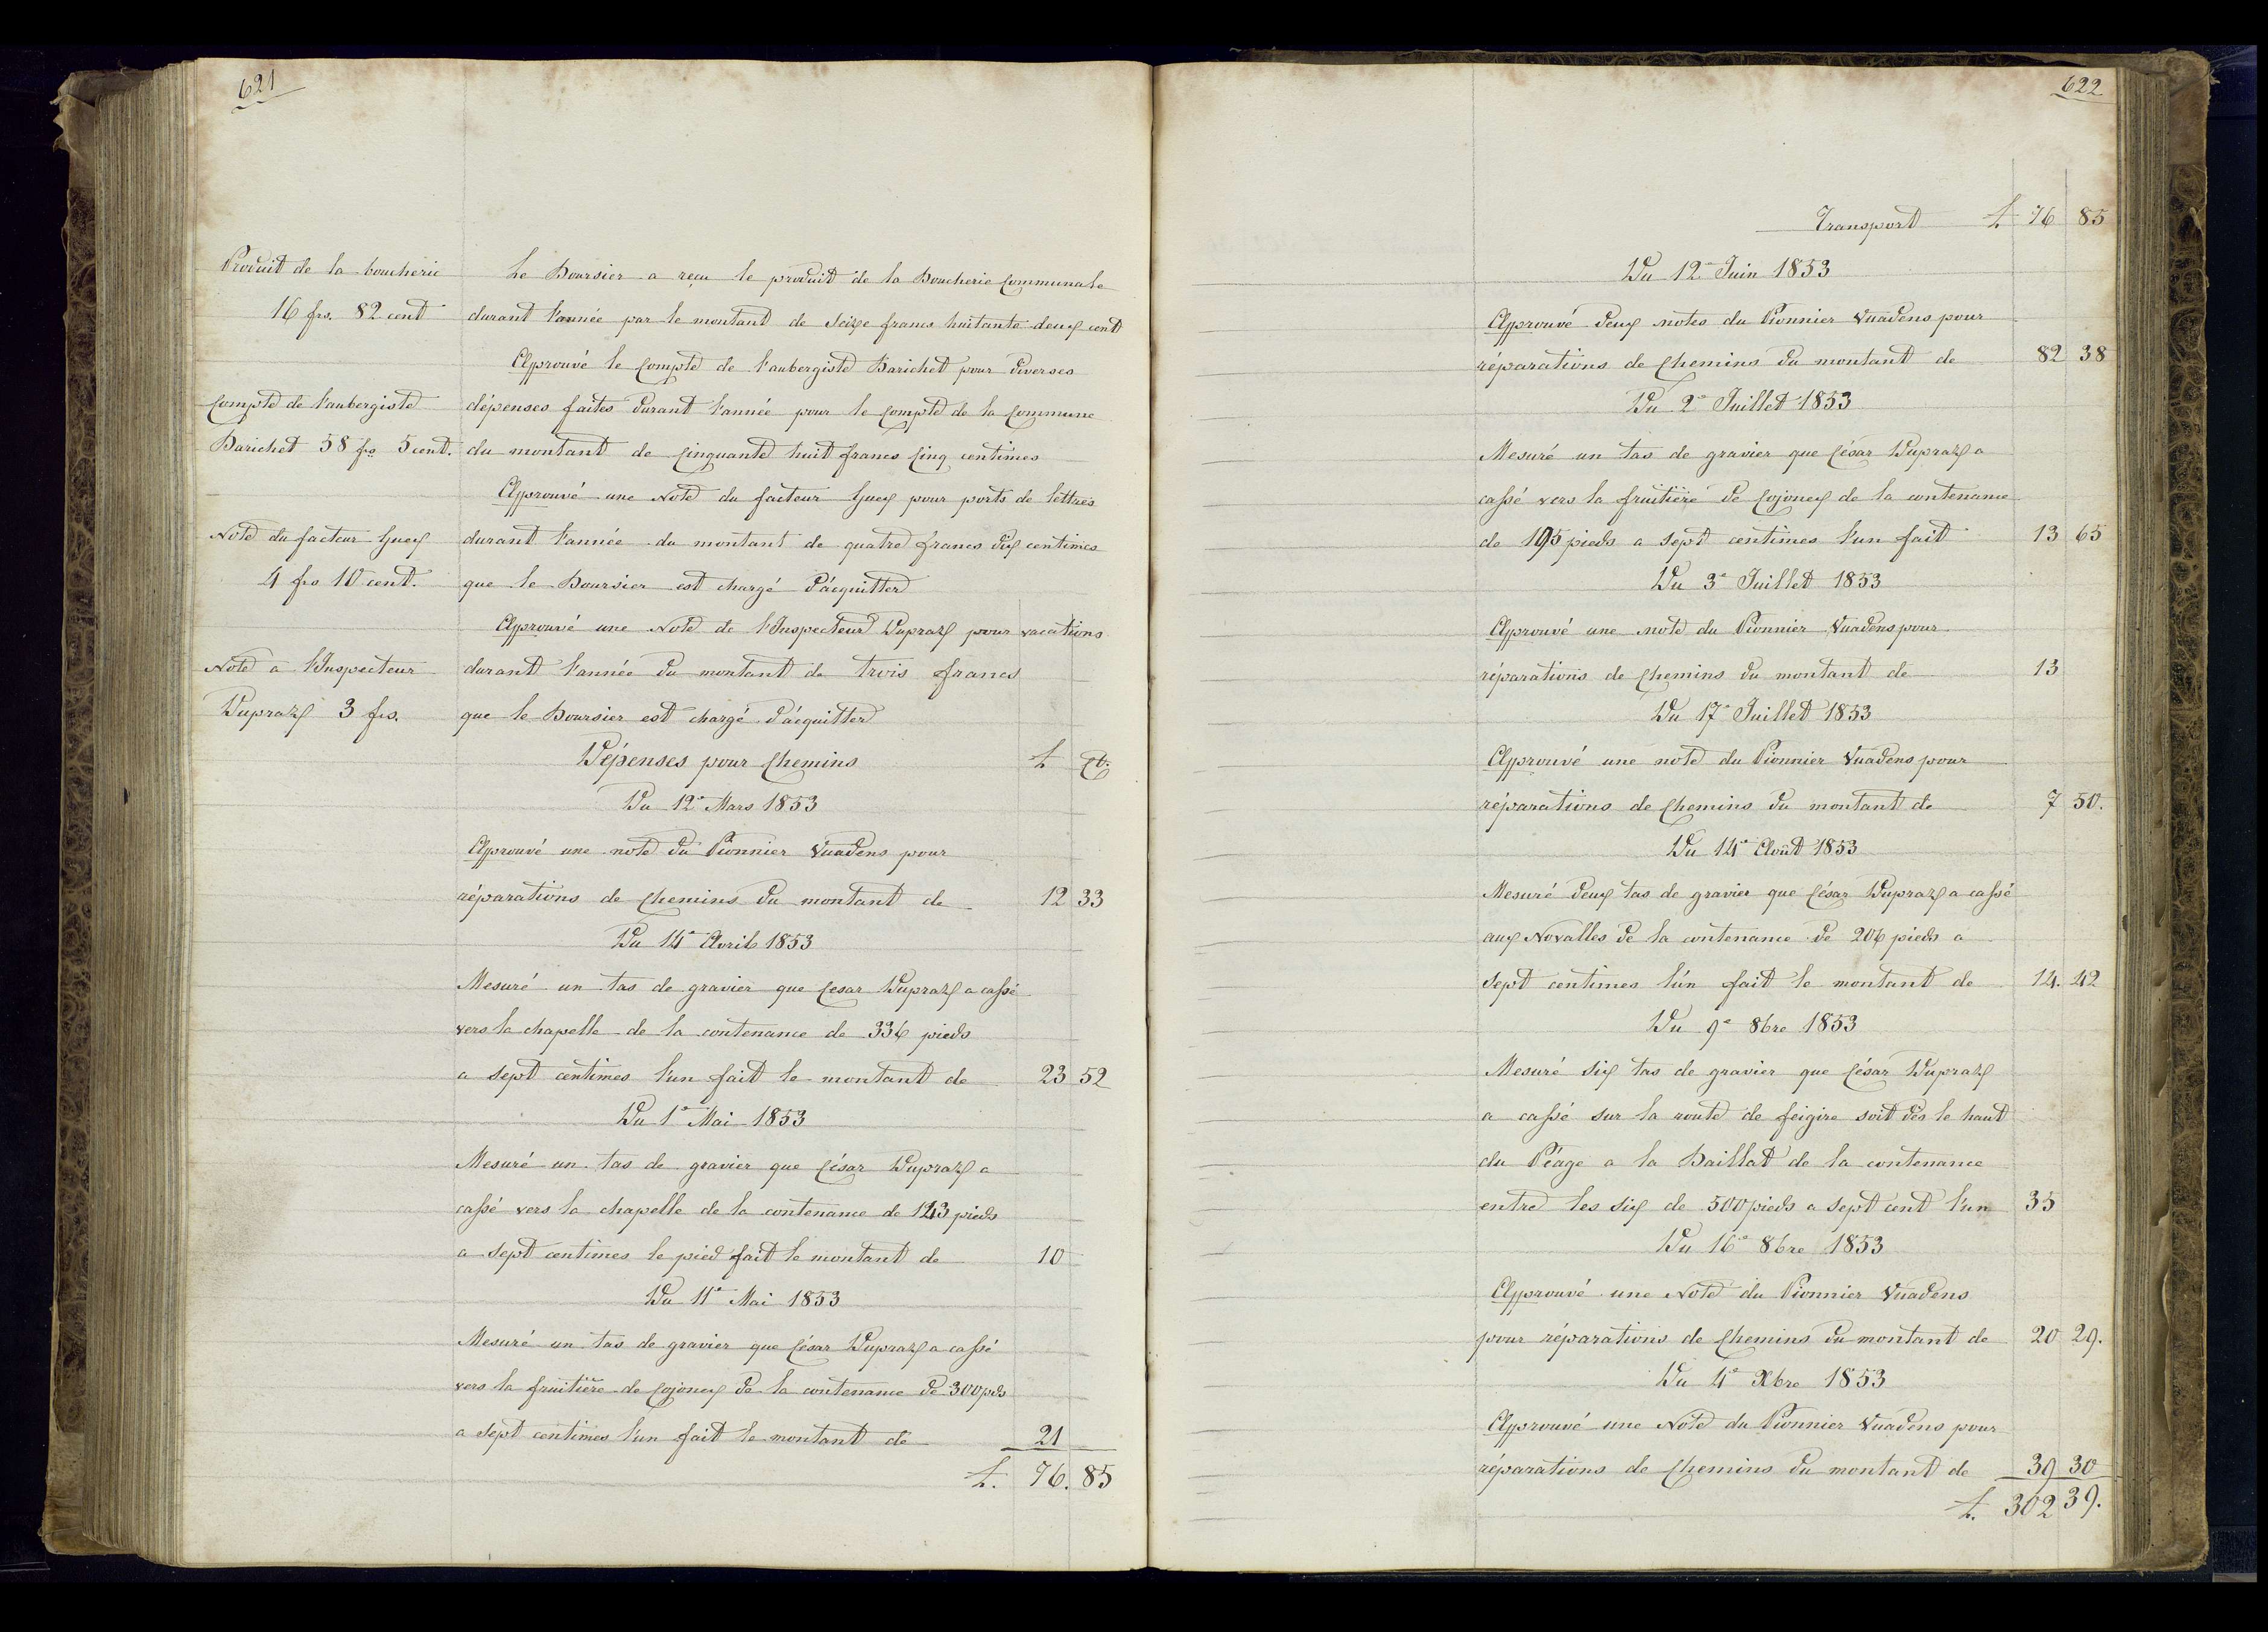 621
Produit de la boucherie
16 frs. 82 cent
Le Boursier a reçu le produit de la Boucherie Communale
durant l'année par le montant de Seize francs huitante deux cent
Approuvé le Compte de l'aubergiste Barichet pour diverses
Compte de l'aubergiste
Barichet 58 frs 5 cent.
dépenses faites durant l'année pour le Compte de la Commune
du montant de Cinquante huit francs Cinq centimes
Approuvé une Note du facteur Guex pour ports de lettres
Note du facteur Guex
4 frs 10 cent.
durant l'année du montant de quatre francs dix centimes
que le Boursier est chargé d'acquitter
Approuvé une Note de l'Inspecteur Dupraz pour vacations
Note a l'Inspecteur
Dupraz 3 frs.
durant l'année du montant de trois francs
que le Boursier est chargé d'acquitter
Dépenses pour Chemins £ Ct.
Du 12e Mars 1853
Approuvé une note du Pionnier Vuadens pour
réparations de Chemins du montant de 12 33
Du 14e Avril 1853
Mesuré un tas de gravier que Cesar Dupraz a cassé
vers la chapelle de la contenance de 336 pieds
a sept centimes l'un fait le montant de 23 52
Du 1e Mai 1853
Mesuré un tas de gravier que César Dupraz a
cassé vers la chapelle de la contenance de 143 pieds
a sept centimes le pied fait le montant de 10
Du 11e Mai 1853
Mesuré un tas de gravier que César Dupraz a cassé
vers la fruitière de Cojonex de la contenance de 300 pds
a sept centimes l'un fait le montant de 21
£. 76. 85
622
Transport £ 76 85
Du 12e Juin 1853
Approuvé deux notes du Pionnier Vuadens pour
réparations de Chemins du montant de 82 38
Du 2e Juillet 1853
Mesuré un tas de gravier que César Dupraz a
cassé vers la fruitière de Cojonex de la contenance
de 195 pieds a sept centimes l'un fait 13 65
Du 3e Juillet 1853
Approuvé une note du Pionnier Vuadens pour
réparations de Chemins du montant de 13
Du 17e Juillet 1853
Approuvé une note du Pionnier Vuadens pour
réparations de Chemins du montant de 7 50.
Du 14e Août 1853
Mesuré deux tas de gravier que César Dupraz a cassé
aux Novalles de la contenance de 206 pieds a
sept centimes l'un fait le montant de 14. 42
Du 9e 8bre 1853
Mesuré six tas de gravier que César Dupraz
a cassé sur la route de feigire soit dès le haut
du Péage a la Baillat de la contenance
entre les six de 500 pieds a sept cent l'un 35
Du 16e 8bre 1853
Approuvé une Note du Pionnier Vuadens
pour réparations de Chemins du montant de 20 29.
Du 4e Xbre 1853
Approuvé une Note du Pionnier Vuadens pour
réparations de Chemins du montant de 39 30
£. 302 39.